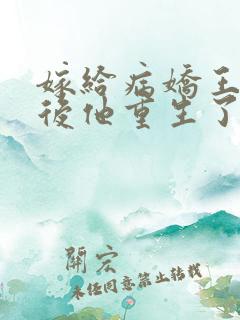 嫁給病嬌王
後他重生了
開宏
未經同意禁止轉載